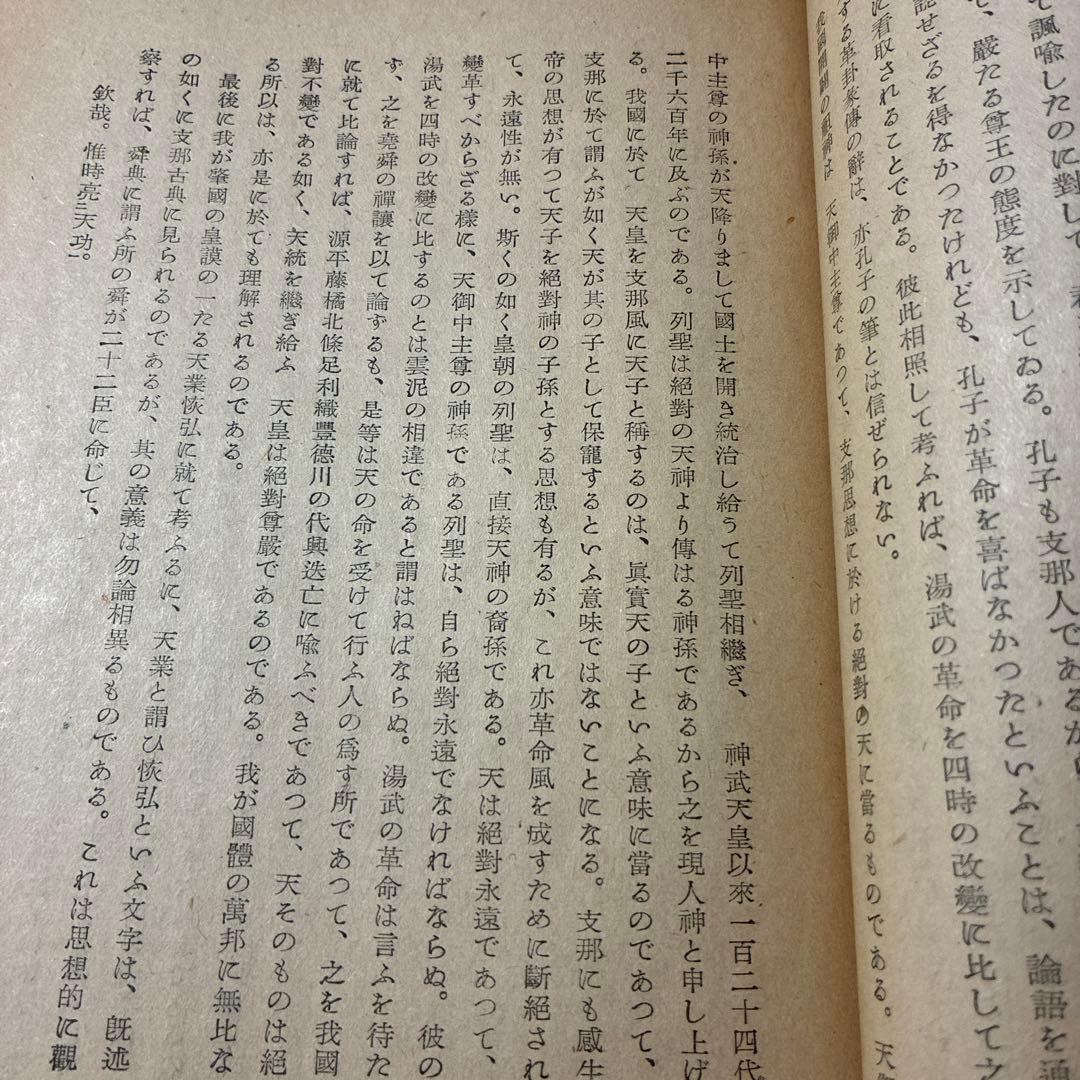 て諷喩したのに對して、
て、嚴たる尊王の態度を示してゐる。孔子も支那人であるか
認せざるを得なかつたけれども、孔子が革命を喜ばなかつたといふことは、論語を通
に看取されることである。彼此相照して考ふれば、湯武の革命を四時の改變に比して之
する革卦彖傳の辭は、亦孔子の筆とは信ぜられない。
我國開闢の祖神は 天御中主尊であつて、支那思想に於ける絕對の天に當るものである。天御
中主尊の神孫が天降りまして國土を開き統治し給うて列聖相繼ぎ、 神武天皇以來一百二十四代、
二千六百年に及ぶのである。列聖は絕對の天神より傳はる神孫であるから之を現人神と申し上げ
る。我國に於て 天皇を支那風に天子と稱するのは、眞實天の子といふ意味に當るのであつて、
支那に於て謂ふが如く天が其の子として保寵するといふ意味ではないことになる。支那にも感生
帝の思想が有つて天子を絕對神の子孫とする思想も有るが、これ亦革命風を成すために斷絕され
て、永遠性が無い。斯くの如く皇朝の列聖は、直接天神の裔孫である。天は絕對永遠であつて、
變革すべからざる樣に、天御中主尊の神孫である列聖は、自ら絕對永遠でなければならぬ。彼の
湯武を四時の改變に比するのとは雲泥の相違であると謂はねばならぬ。湯武の革命は言ふを待た
ず、之を堯舜の禪讓を以て論ずるも、是等は天の命を受けて行ふ人の爲す所であつて、之を我國
に就て比論すれば、源平藤橘北條足利織豐德川の代興迭亡に喩ふべきであつて、天そのものは絕
對不變である如く、天統を繼ぎ給ふ 天皇は絕對尊嚴であるのである。我が國體の萬邦に無比な
る所以は、亦是に於ても理解されるのである。
最後に我が肇國の皇謨の一たる天業恢弘に就て考ふるに、天業と謂ひ恢弘といふ文字は、旣述
の如くに支那古典に見られるのであるが、其の意義は勿論相異るものである。これは思想的に觀
察すれば、舜典に謂ふ所の舜が二十二臣に命じて、
欽哉。惟時亮二天功一。